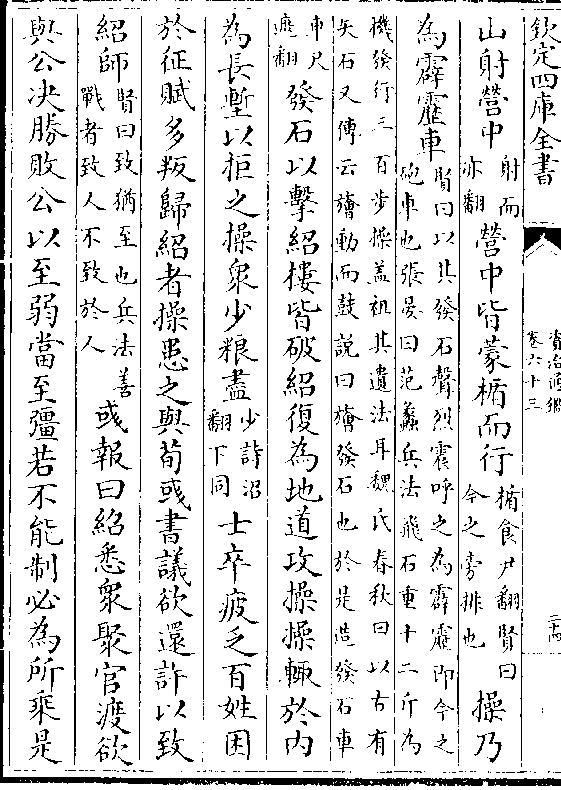 欽定四庫全書
資治通鑑
卷六十三
山射營中射而亦翻營中皆蒙楯而行楯食尹翻賢曰今之旁排也操乃
為霹靂車賢曰以其發石聲烈震呼之為霹靂即今之砲車也張晏曰范蠡兵法飛石重十二斤為
機發行三百步操盖祖其遺法耳魏氏春秋曰以古有
矢石又傳云旝動而鼓說曰旝發石也於是造發石車
車尺遮翻發石以擊紹樓皆破紹復為地道攻操操輒於内
為長塹以拒之操衆少粮盡少詩沼翻下同士卒疲乏百姓困
於征賦多叛歸紹者操患之與荀彧書議欲還許以致
紹師賢曰致猶至也兵法善戰者致人不致於人彧報曰紹悉衆聚官渡欲
與公決勝敗公以至弱當至彊若不能制必為所乘是